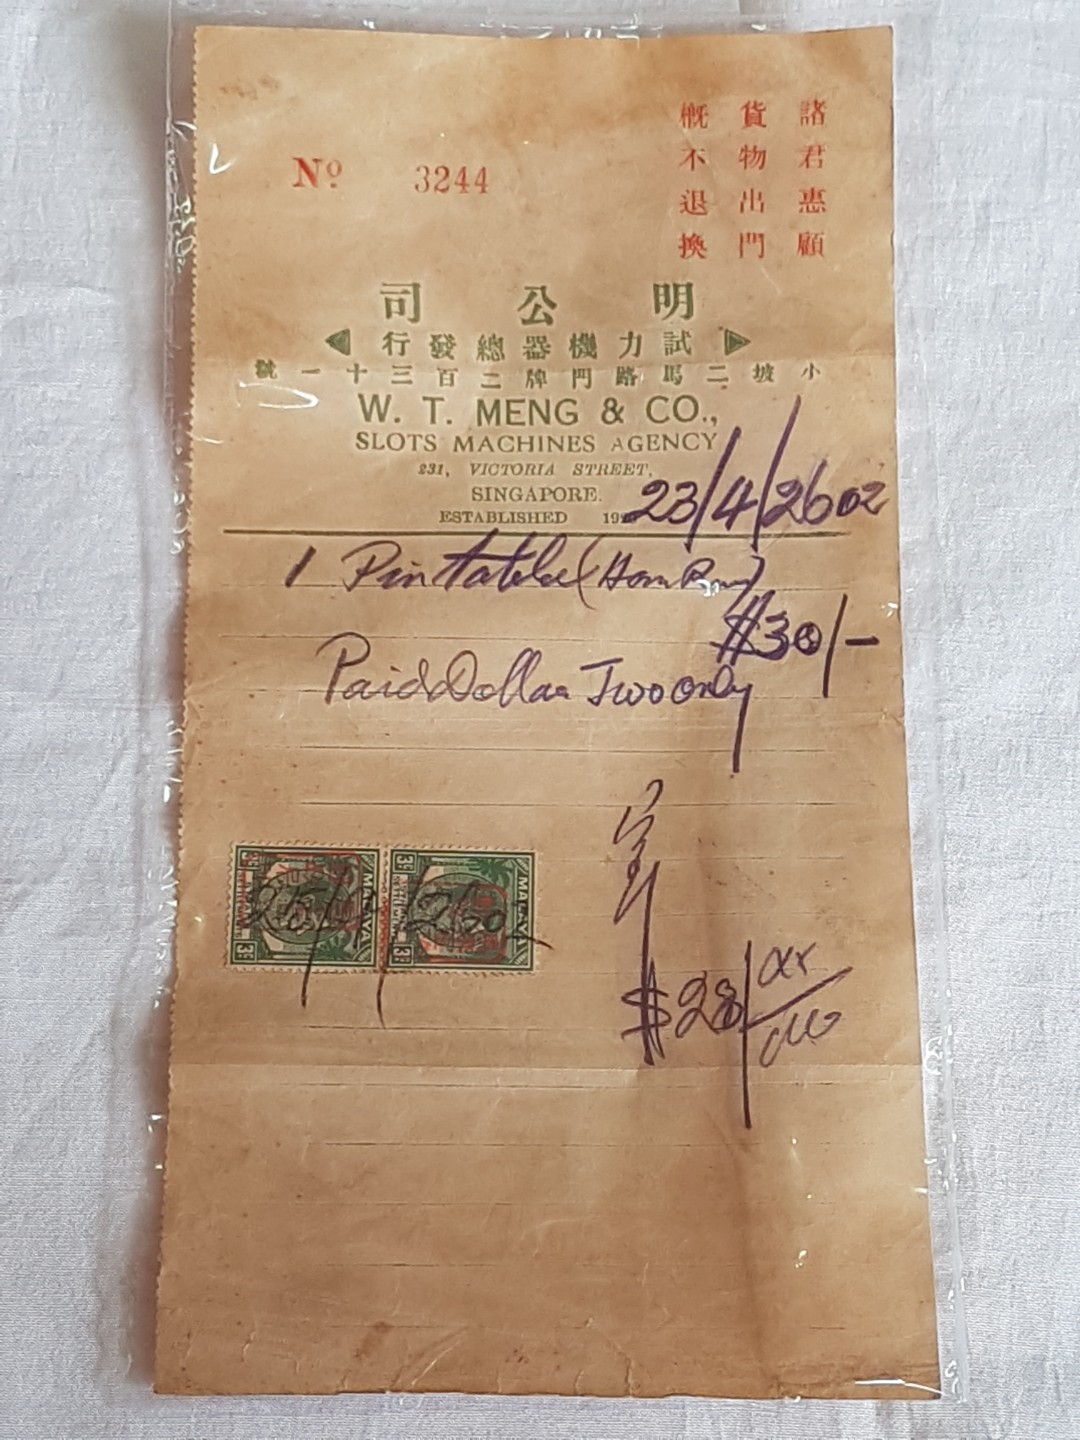 諸君惠顧
貨物出門
概不退換
Nº 3244
明公司
試力機器總發行
小坡二馬路門牌二百三十一號
W. T. MENG & CO.,
SLOTS MACHINES AGENCY
231, VICTORIA STREET,
SINGAPORE.
ESTABLISHED
23/4/2602
1 Pin table
$30/-
Paid Dollar Two only
MALAYA 3c 3c
MALAYA 3c 3c
$28/